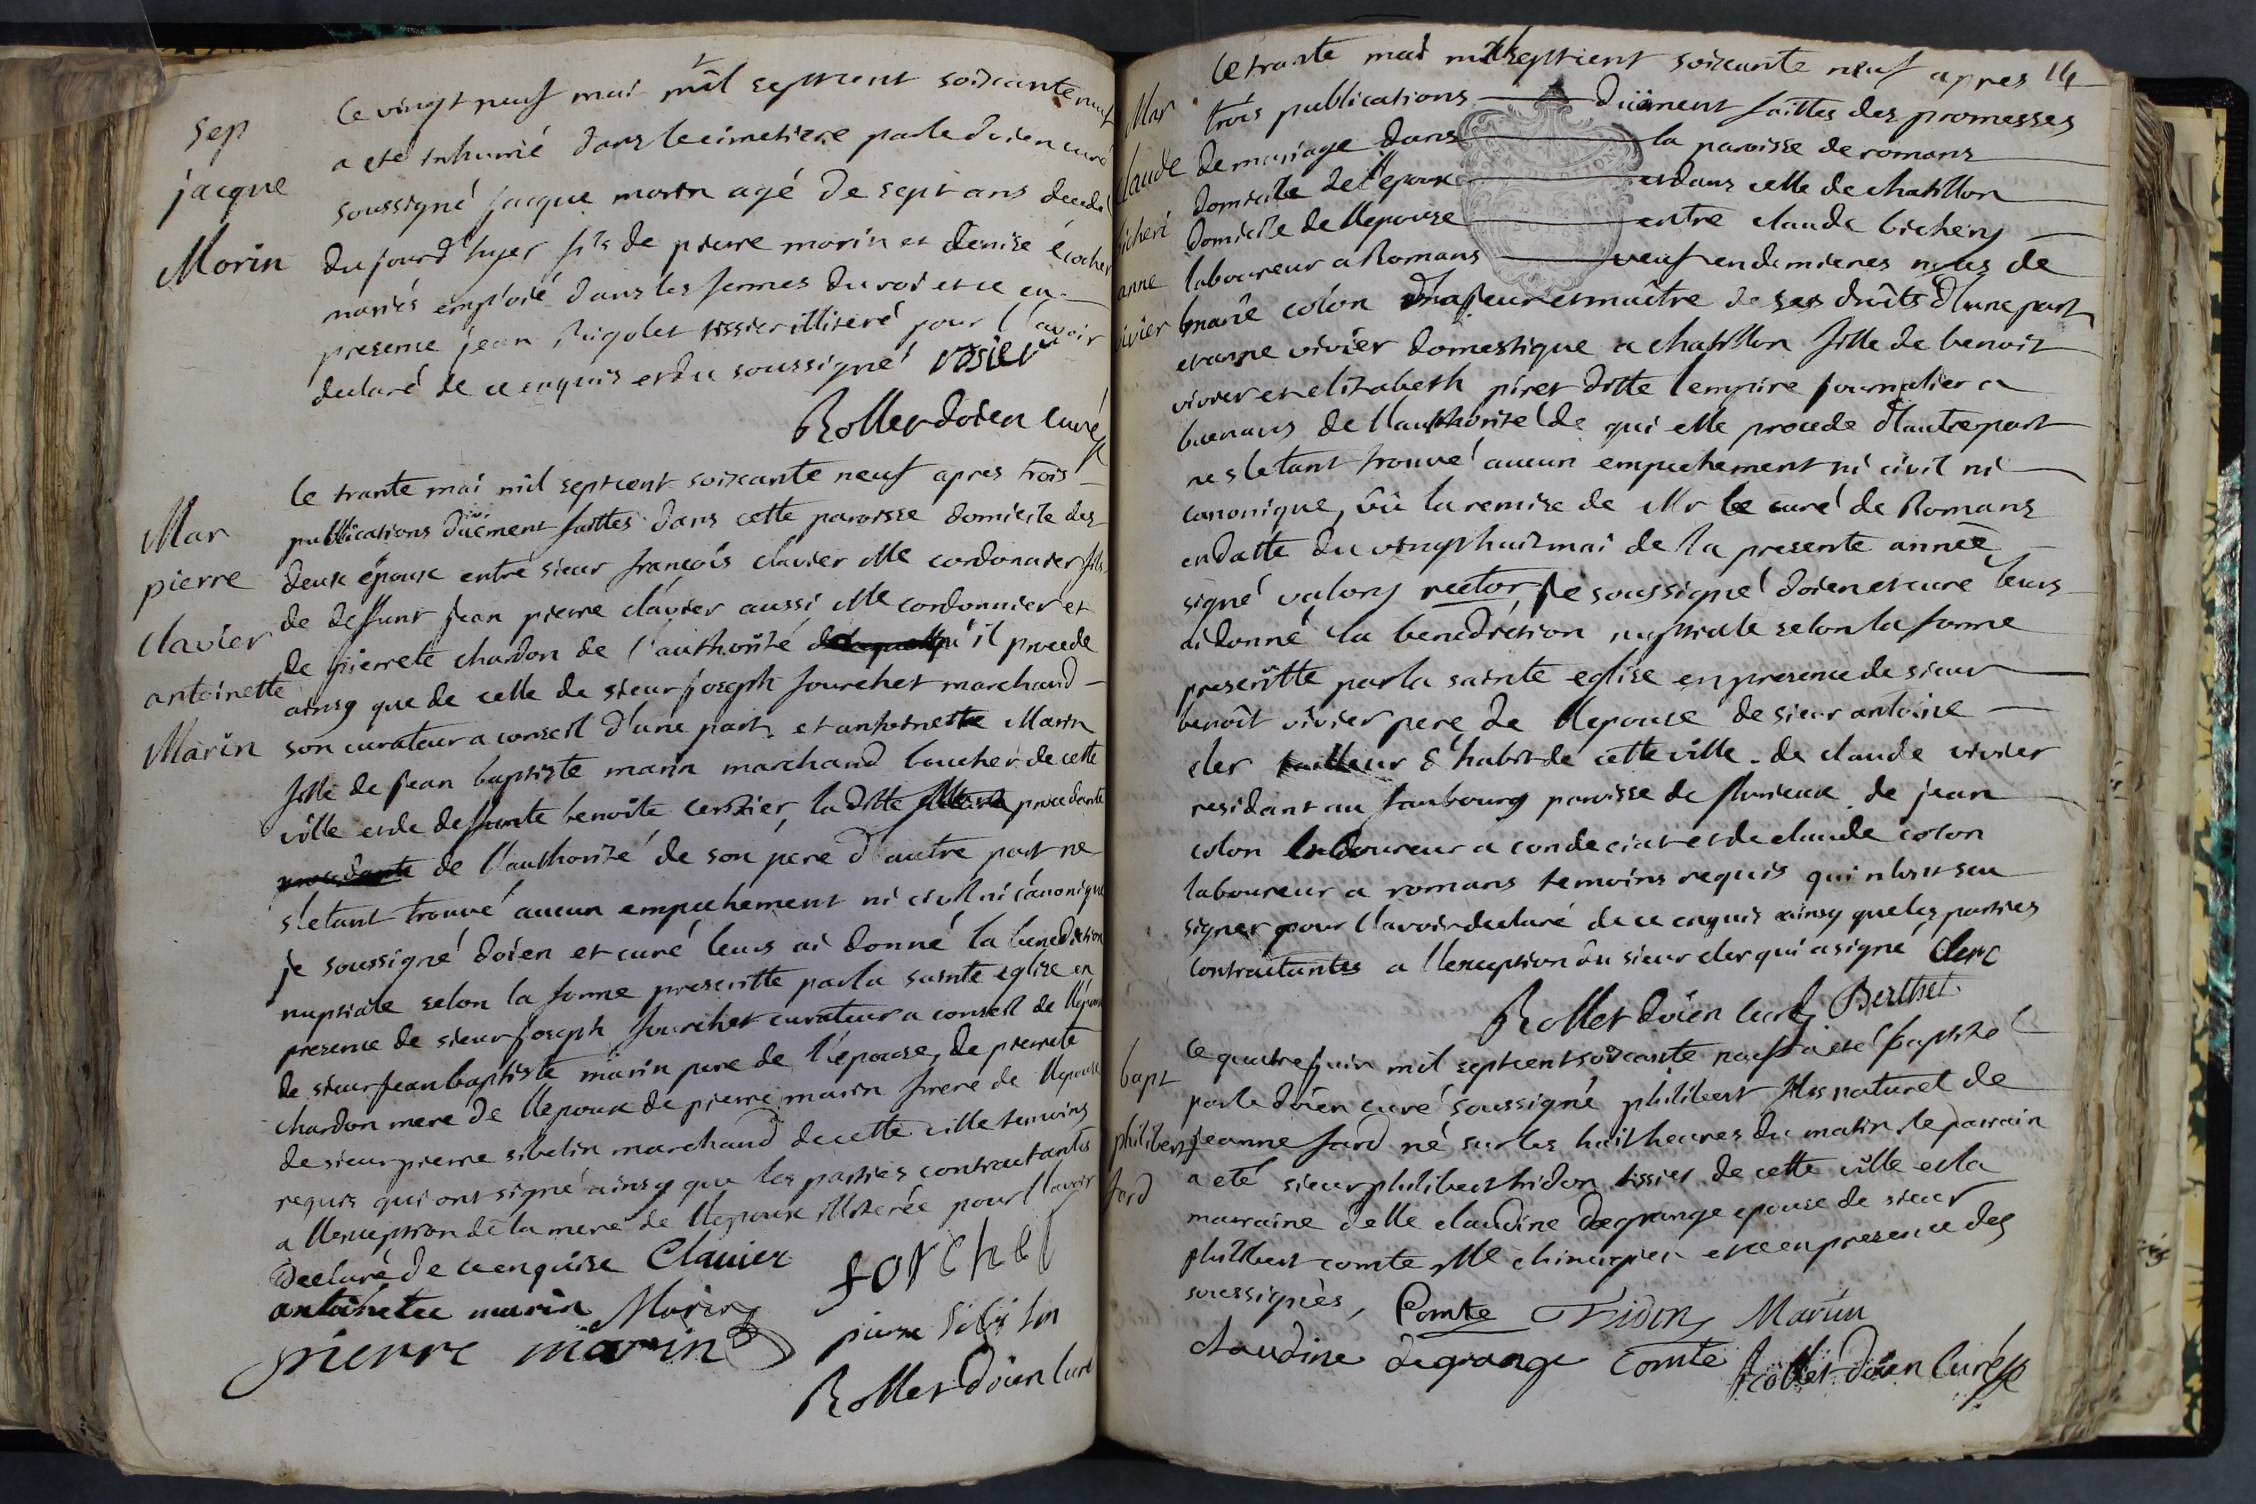 Sep
jacque
Morin
le vingt neuf mai mil septcent soixante neuf
a ete inhumé dans le cimetiere par le doien curé
soussigné jacque morin agé de sept ans decedé
du jourd'hyer fils de pierre morin et denise écocher
mariés emploié dans les fermes du roi et ce en
presence jean rigolet tissier illiteré pour l'avoir
declaré de ce enquis et du soussigné rosier
Rollet doien curé
Mar
pierre
Clavier
antoinette
Marin
le trante mai mil septcent soixante neuf apres trois
publications düement faittes dans cette paroisse domicile des
deux époux entre sieur françois clavier Me cordonnier fils
de deffunt jean pierre clavier aussi Me cordonnier et
de pierrete chardon de l'authorité qu'il procede
ainsy que de celle de sieur joseph fourchet marchand
son curateur a conseil d'une part et antoinette Marin
fille de jean baptiste marin marchand boucher de cette
ville et de deffunte benoite la ditte procedante
procedante de l'authorité de son pere d'autre part ne
s'etant trouvé aucun empechement ni civil ni canonique
je soussigné doien et curé leurs ai donné la benediction
nuptiale selon la forme prescritte par la sainte eglise en
presence de sieur joseph fourchet curateur a conseil de l'époux
de sieur jean baptiste marin pere de l'épouse, de pierrete
chardon mere de l'epoux de pierre marin frere de l'epouse
de sieur pierre sibelin marchand de cette ville temoins
requis qui ont signé ainsy que les parties contractantes
a l'exception de la mere de l'epoux illiterée pour l'avoir
declaré de ce enquise Clavier forchet
antoinette marin Marin
pierre marin pierre Sibilin
Rollet doien curé
14
Mar
claude
bicheri
anne
vivier
le trante mai mil septcent soixante neuf apres
trois publications düement faittes des promesses
de mariage dans la paroisse de romans
domicile de l'epoux et dans celle de chatillon
domicile de l'epouse entre claude bichery
laboureur a Romans veuf en dernieres de
marie colon majeur et maitre de ses droits d'une part
et anne vivier domestique a chatillon fille de benoit
vivier et elizabeth piret ditte l'empire journalier a
buenans de l'authorité de qui elle procede d'autre part
ne s'etant trouvé aucun empechement ni civil ni
canonique, vû la remise de Mr le curé de Romans
en datte du vingt huit mai de la presente année
signé valory rector, je soussigné doien et curé leurs
ai donné la benediction nuptiale selon la forme
prescritte par la sainte eglise en presence de sieur
benoit vivier pere de l'epouse de sieur antoine
cler tailleur d'habit de cette ville. de claude vivier
residant au faubourg paroisse de flurieux. de jean
colon laboureur a condeciat et de claude colon
laboureur a romans temoins requis qui n'ont seu
signer pour l'avoir declaré de ce enquis ainsy que les parties
contractantes a l'exception du sieur cler qui a signé Clerc
Rollet doien curé Berthet
bapt
philibert
fard
le quatre juin mil septcent soixante neuf a eté baptisé
par le doien curé soussigné philibert fils naturel de
jeanne fard né sur les huit heures du matin le parrain
a eté sieur philibert tridon tissier de cette ville et la
marraine delle claudine degrange epouse de sieur
philibert comte Me chirurgien et ce en presence des
soussignés, Comte Tridon Marin
claudine degrange comte Rollet doien curé